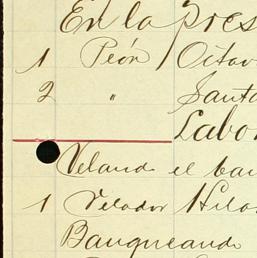 En la Pres
1 Peón Octav
2 " Santo
Labor
Velando el ban
1 Velador Hila
Banqueando